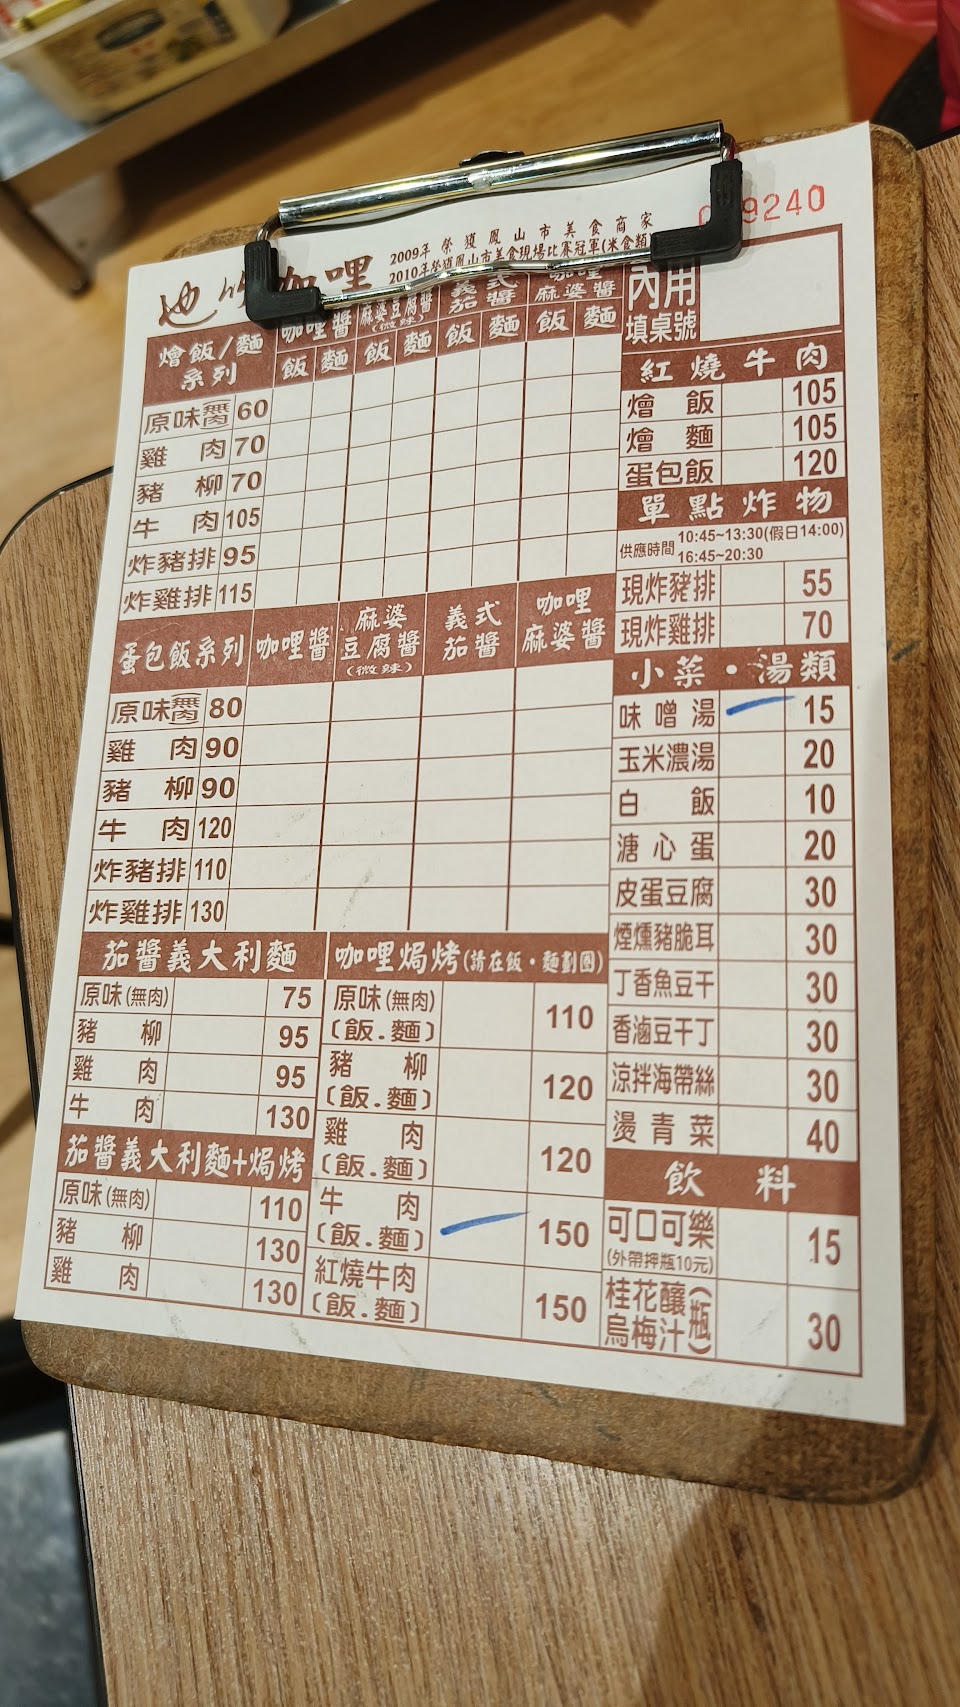 咖哩
2009年 榮獲鳳山市美食商家
2010年榮獲鳳山市美食現場比賽冠軍(米食類)
9240
內用
填桌號
燴飯/麵
系列
咖哩醬
麻婆豆腐醬
(微辣)
義式
茄醬
咖哩
麻婆醬
飯 麵 飯 麵 飯 麵 飯 麵
原味(無肉) 60
雞肉 70
豬柳 70
牛肉 105
炸豬排 95
炸雞排 115
蛋包飯系列
咖哩醬
麻婆
豆腐醬
(微辣)
義式
茄醬
咖哩
麻婆醬
原味(無肉) 80
雞肉 90
豬柳 90
牛肉 120
炸豬排 110
炸雞排 130
茄醬義大利麵
原味(無肉) 75
豬柳 95
雞肉 95
牛肉 130
茄醬義大利麵+焗烤
原味(無肉) 110
豬柳 130
雞肉 130
咖哩焗烤(請在飯·麵劃圈)
原味(無肉)
(飯.麵) 110
豬柳
(飯.麵) 120
雞肉
(飯.麵) 120
牛肉
(飯.麵) 150
紅燒牛肉
(飯.麵) 150
紅燒牛肉
燴飯 105
燴麵 105
蛋包飯 120
單點炸物
供應時間 10:45~13:30(假日14:00)
16:45~20:30
現炸豬排 55
現炸雞排 70
小菜·湯類
味噌湯 15
玉米濃湯 20
白飯 10
溏心蛋 20
皮蛋豆腐 30
煙燻豬脆耳 30
丁香魚豆干 30
香滷豆干丁 30
涼拌海帶絲 30
燙青菜 40
飲料
可口可樂 15
(外帶押瓶10元)
桂花釀
烏梅汁(瓶) 30